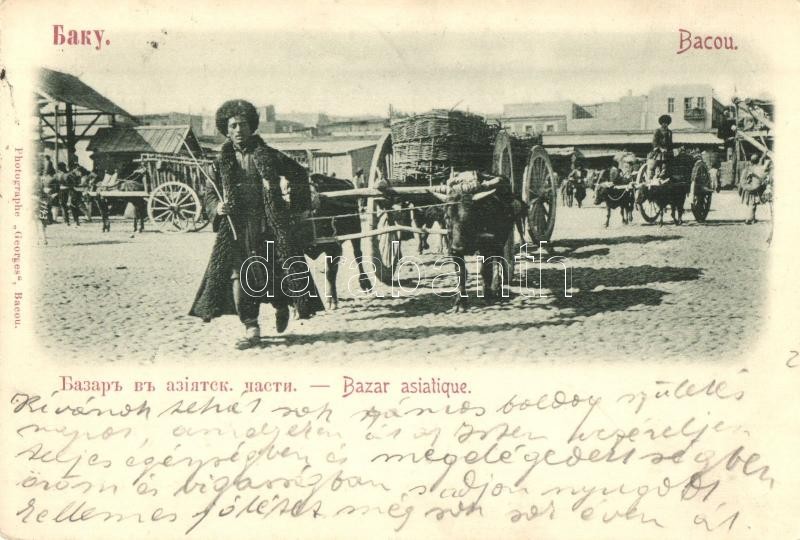 Баку.
Bacou.
Photographe „Georges“, Bacou.
darabanth
Базаръ въ азіятск. части. — Bazar asiatique.
Kivánok tehát sok számos boldog születés
napot, amelyeken át az Isten vezéreljen
teljes egészségben és megelégedettségben
öröm és vigasságban s adjon nyugodt
kellemes jólétet még sok sok even át.